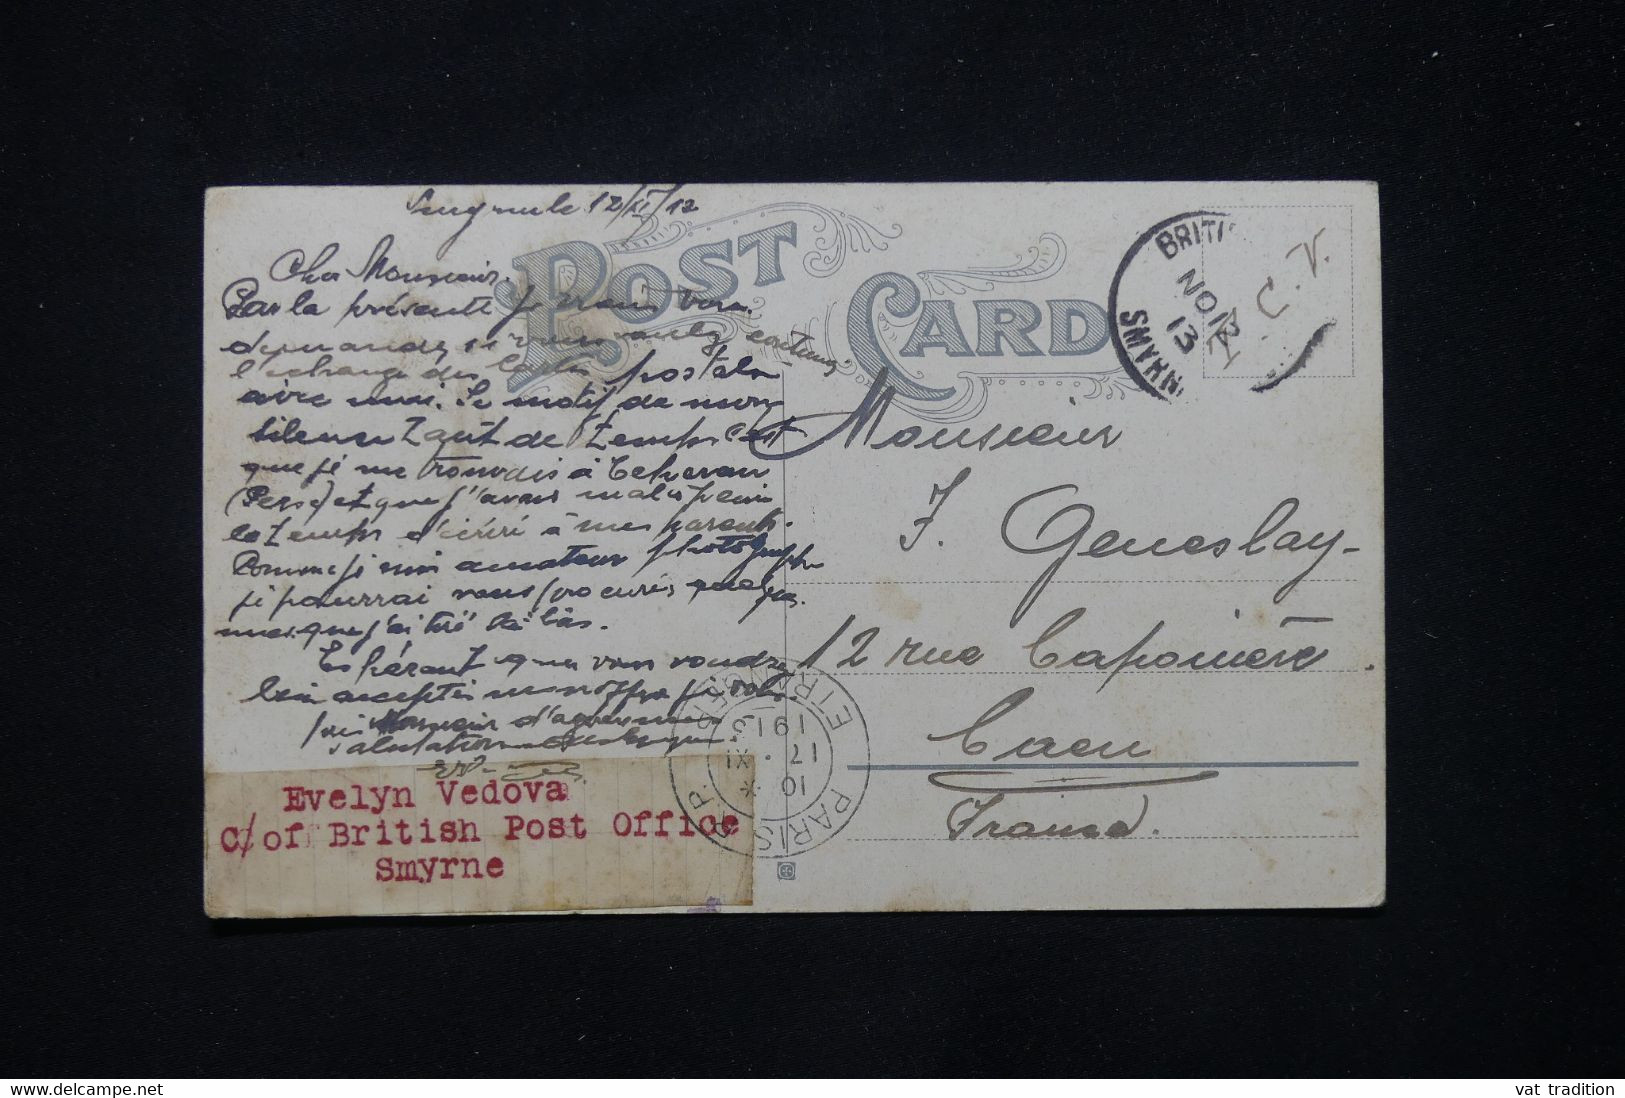 12/XI/12
POST CARD
Cher Monsieur,
Par la présente je viens vous
demander si vous voulez continuer
l'échange des cartes postales
avec moi. Le motif de mon
silence tant de temps c'est
que je me trouvais à Teheran
(Perse) et que j'avais mal à peine
le temps d'écrire à mes parents.
Comme je suis amateur photographe
je pourrai vous procurer quelques
que j'ai tiré là bas.
Espérant que vous voudrez
bien accepter mon offre je
Monsieur d'agréer mes
salutations
Evelyn Vedova
C/ of British Post Office
Smyrne
BRITI
NO 12
13
SMYRN
C. V.
Monsieur
F. Geneslay-
12 rue Caponière.
Caen
France.
PARIS R.P.
ETRANGER
10 *
17 . XI
1913
vat tradition
www.delcampe.net